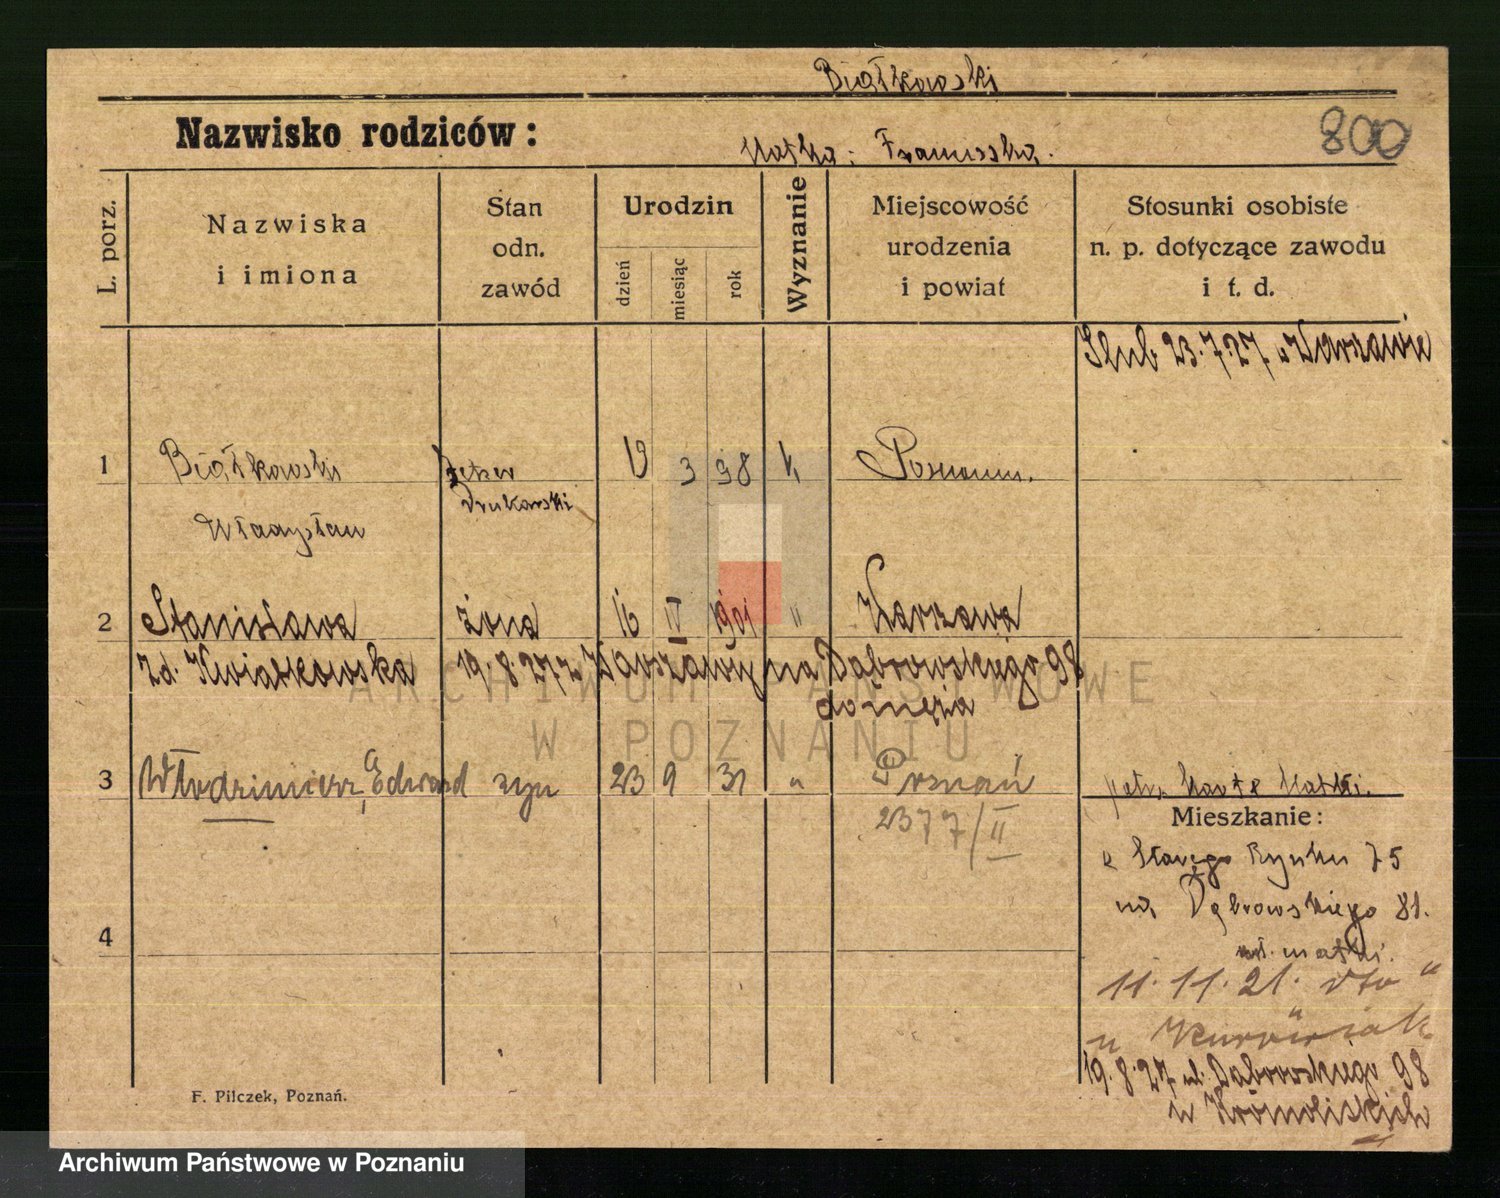 Białkowski
Nazwisko rodziców:
Matka: Franciszka.
800
L. porz.
Nazwiska
i imiona
Stan
odn.
zawód
Urodzin
dzień
miesiąc
rok
Wyznanie
Miejscowość
urodzenia
i powiat
Stosunki osobiste
n. p. dotyczące zawodu
i t. d.
Ślub 23.7.27 w Warszawie
1 Białkowski 19 3 98 k Poznań.
Drukarski
Władysław
2 Stanisława żona 16 IV 1901 " Warszawa
zd. Kwiatkowska 19.8.27 z Warszawy na Dąbrowskiego 98
do męża
3 Włodzimierz, Edward syn 23 9 31 " Poznań
2377/II
patrz Matki.
Mieszkanie:
z Starego Rynku 75
na Dąbrowskiego 81.
matki.
4
11.11.21. dto "
u
19.8.27 ul. Dąbrowskiego 98
u
F. Pilczek, Poznań.
ARCHIWUM PAŃSTWOWE
W POZNANIU
Archiwum Państwowe w Poznaniu